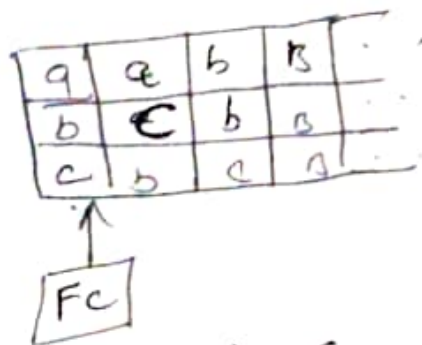 a a b B .
b C b B . .
c b c B . .
Fc